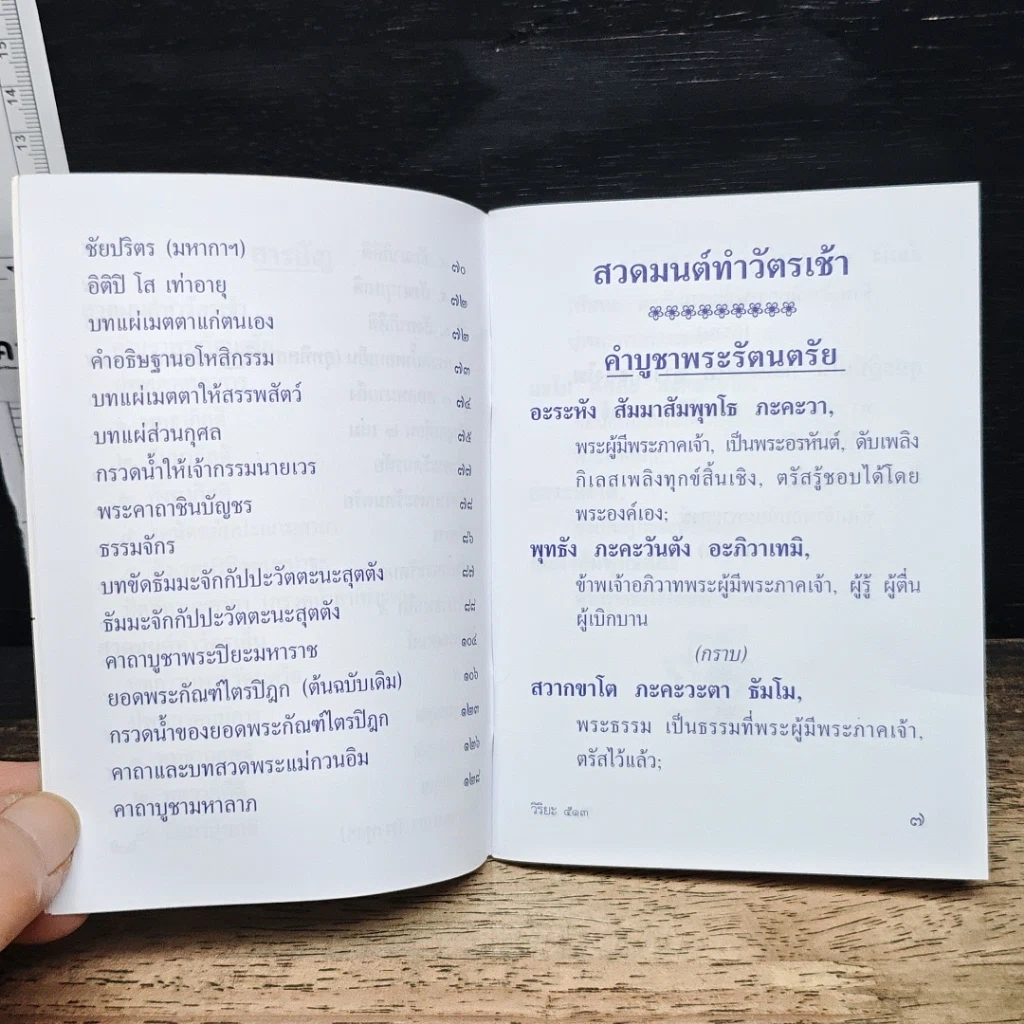 ชัยปริตร (มหากาฯ) ๗๐
อิติปิ โส เท่าอายุ ๗๒
บทแผ่เมตตาแก่ตนเอง ๗๒
คำอธิษฐานอโหสิกรรม ๗๓
บทแผ่เมตตาให้สรรพสัตว์ ๗๔
บทแผ่ส่วนกุศล ๗๕
กรวดน้ำให้เจ้ากรรมนายเวร ๗๗
พระคาถาชินบัญชร ๗๘
ธรรมจักร ๘๖
บทขัดธัมมะจักกัปปะวัตตะนะสุตตัง ๘๗
ธัมมะจักกัปปะวัตตะนะสุตตัง ๘๘
คาถาบูชาพระปิยะมหาราช ๑๐๔
ยอดพระกัณฑ์ไตรปิฎก (ต้นฉบับเดิม) ๑๐๖
กรวดน้ำของยอดพระกัณฑ์ไตรปิฎก ๑๒๓
คาถาและบทสวดพระแม่กวนอิม ๑๒๖
คาถาบูชามหาลาภ ๑๒๘
สวดมนต์ทำวัตรเช้า
คำบูชาพระรัตนตรัย
อะระหัง สัมมาสัมพุทโธ ภะคะวา,
พระผู้มีพระภาคเจ้า, เป็นพระอรหันต์, ดับเพลิง
กิเลสเพลิงทุกข์สิ้นเชิง, ตรัสรู้ชอบได้โดย
พระองค์เอง;
พุทธัง ภะคะวันตัง อะภิวาเทมิ,
ข้าพเจ้าอภิวาทพระผู้มีพระภาคเจ้า, ผู้รู้ ผู้ตื่น
ผู้เบิกบาน
(กราบ)
สวากขาโต ภะคะวะตา ธัมโม,
พระธรรม เป็นธรรมที่พระผู้มีพระภาคเจ้า,
ตรัสไว้แล้ว;
วิริยะ ๕๑๓
๗
13
14
15